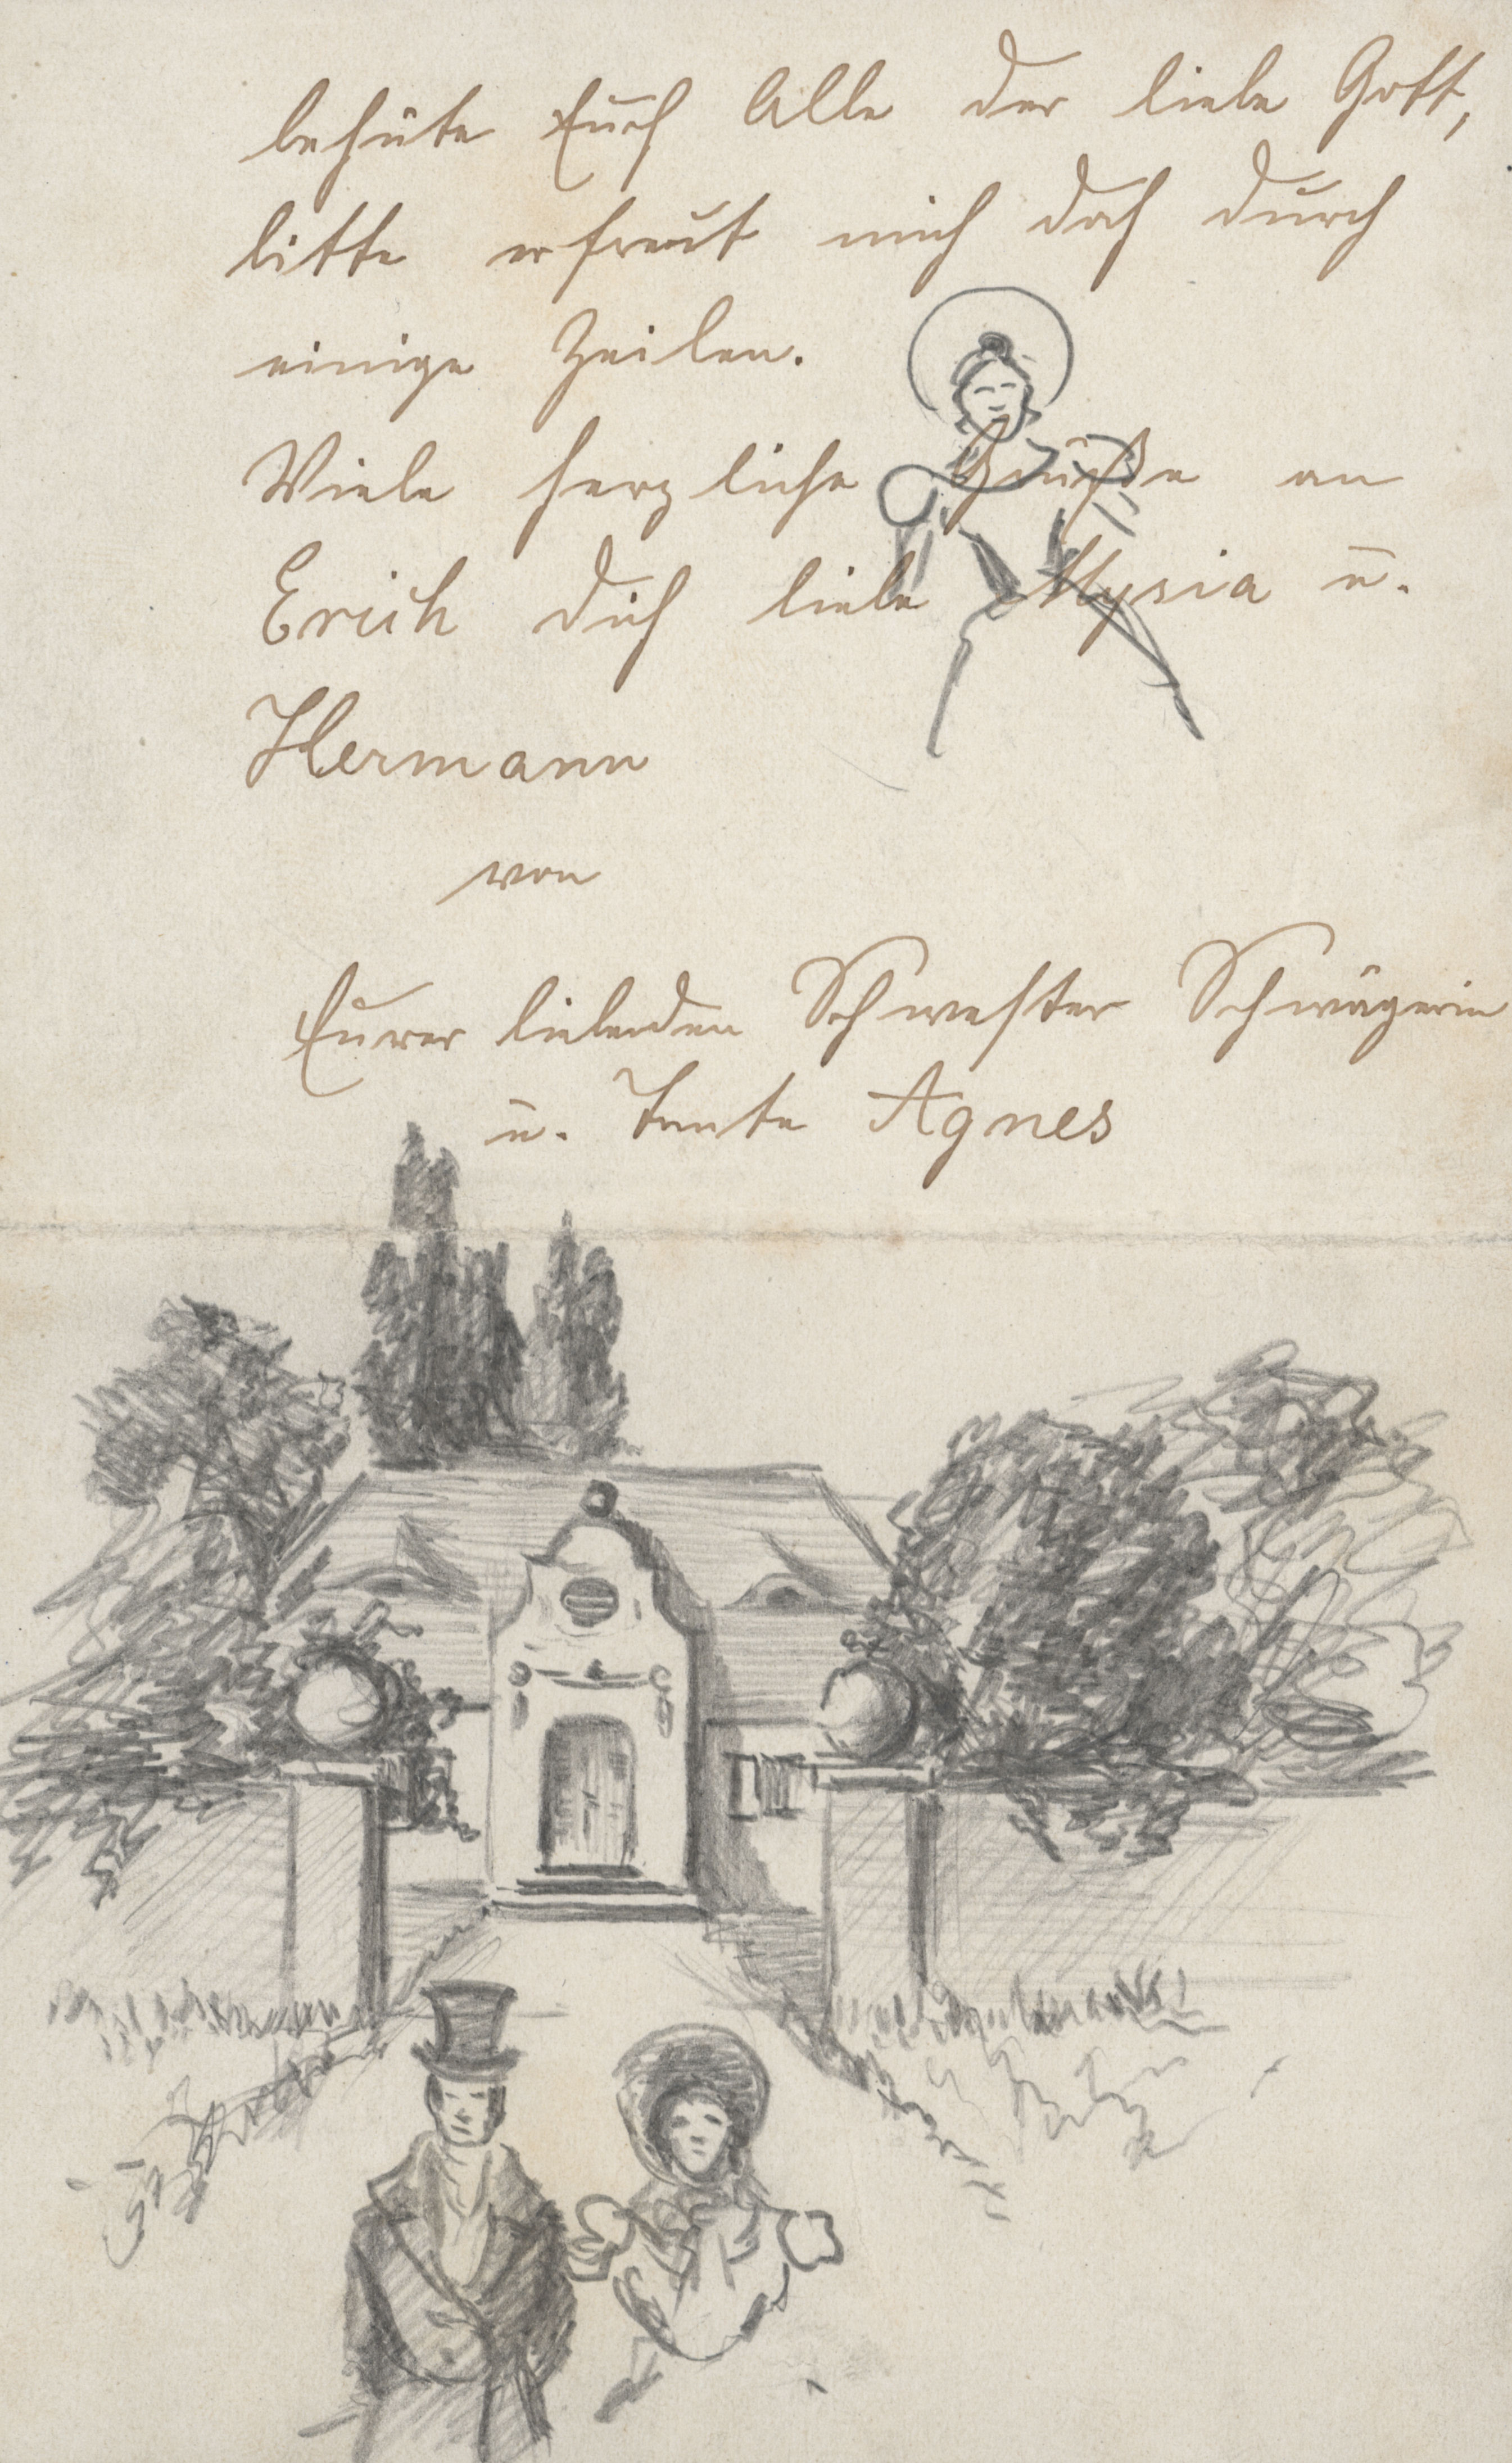 behüte Euch Alle der liebe Gott,
bitte erfreut mich doch durch
einige Zeilen.
Viele herzliche Grüße an
Erich dich liebe Mysia u.
Hermann
von
Eurer liebenden Schwester Schwägerin
u. Tante Agnes